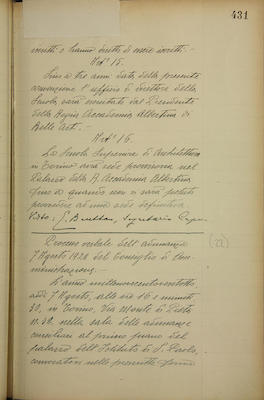 431
iscritti o hanno diritto di essere iscritti. -
Art° 15.
Fino a tre anni data della presente
convenzione l'ufficio di direttore della
Scuola, sarà esercitato dal Presidente
della Regia Accademia Albertina di
Belle Arti. -
Art° 16.
La Scuola Superiore di Architettura
in Torino avrà sede provvisoria nel
Palazzo della R. Accademia Albertina
fino a quando non si sarà potuto
provvedere ad una sede definitiva.
Visto: Segretario Capo.
Processo verbale dell'adunanza
7 Agosto 1928 del Consiglio di Am-
ministrazione. -
L'anno millenovecentoventotto,
addì 7 Agosto, alle ore 16 e minuti
30, in Torino, Via Monte di Pietà
N. 32, nella sala delle adunanze
consiliari al primo piano del
palazzo dell'Istituto di S. Paolo,
convocatosi nelle prescritte forme